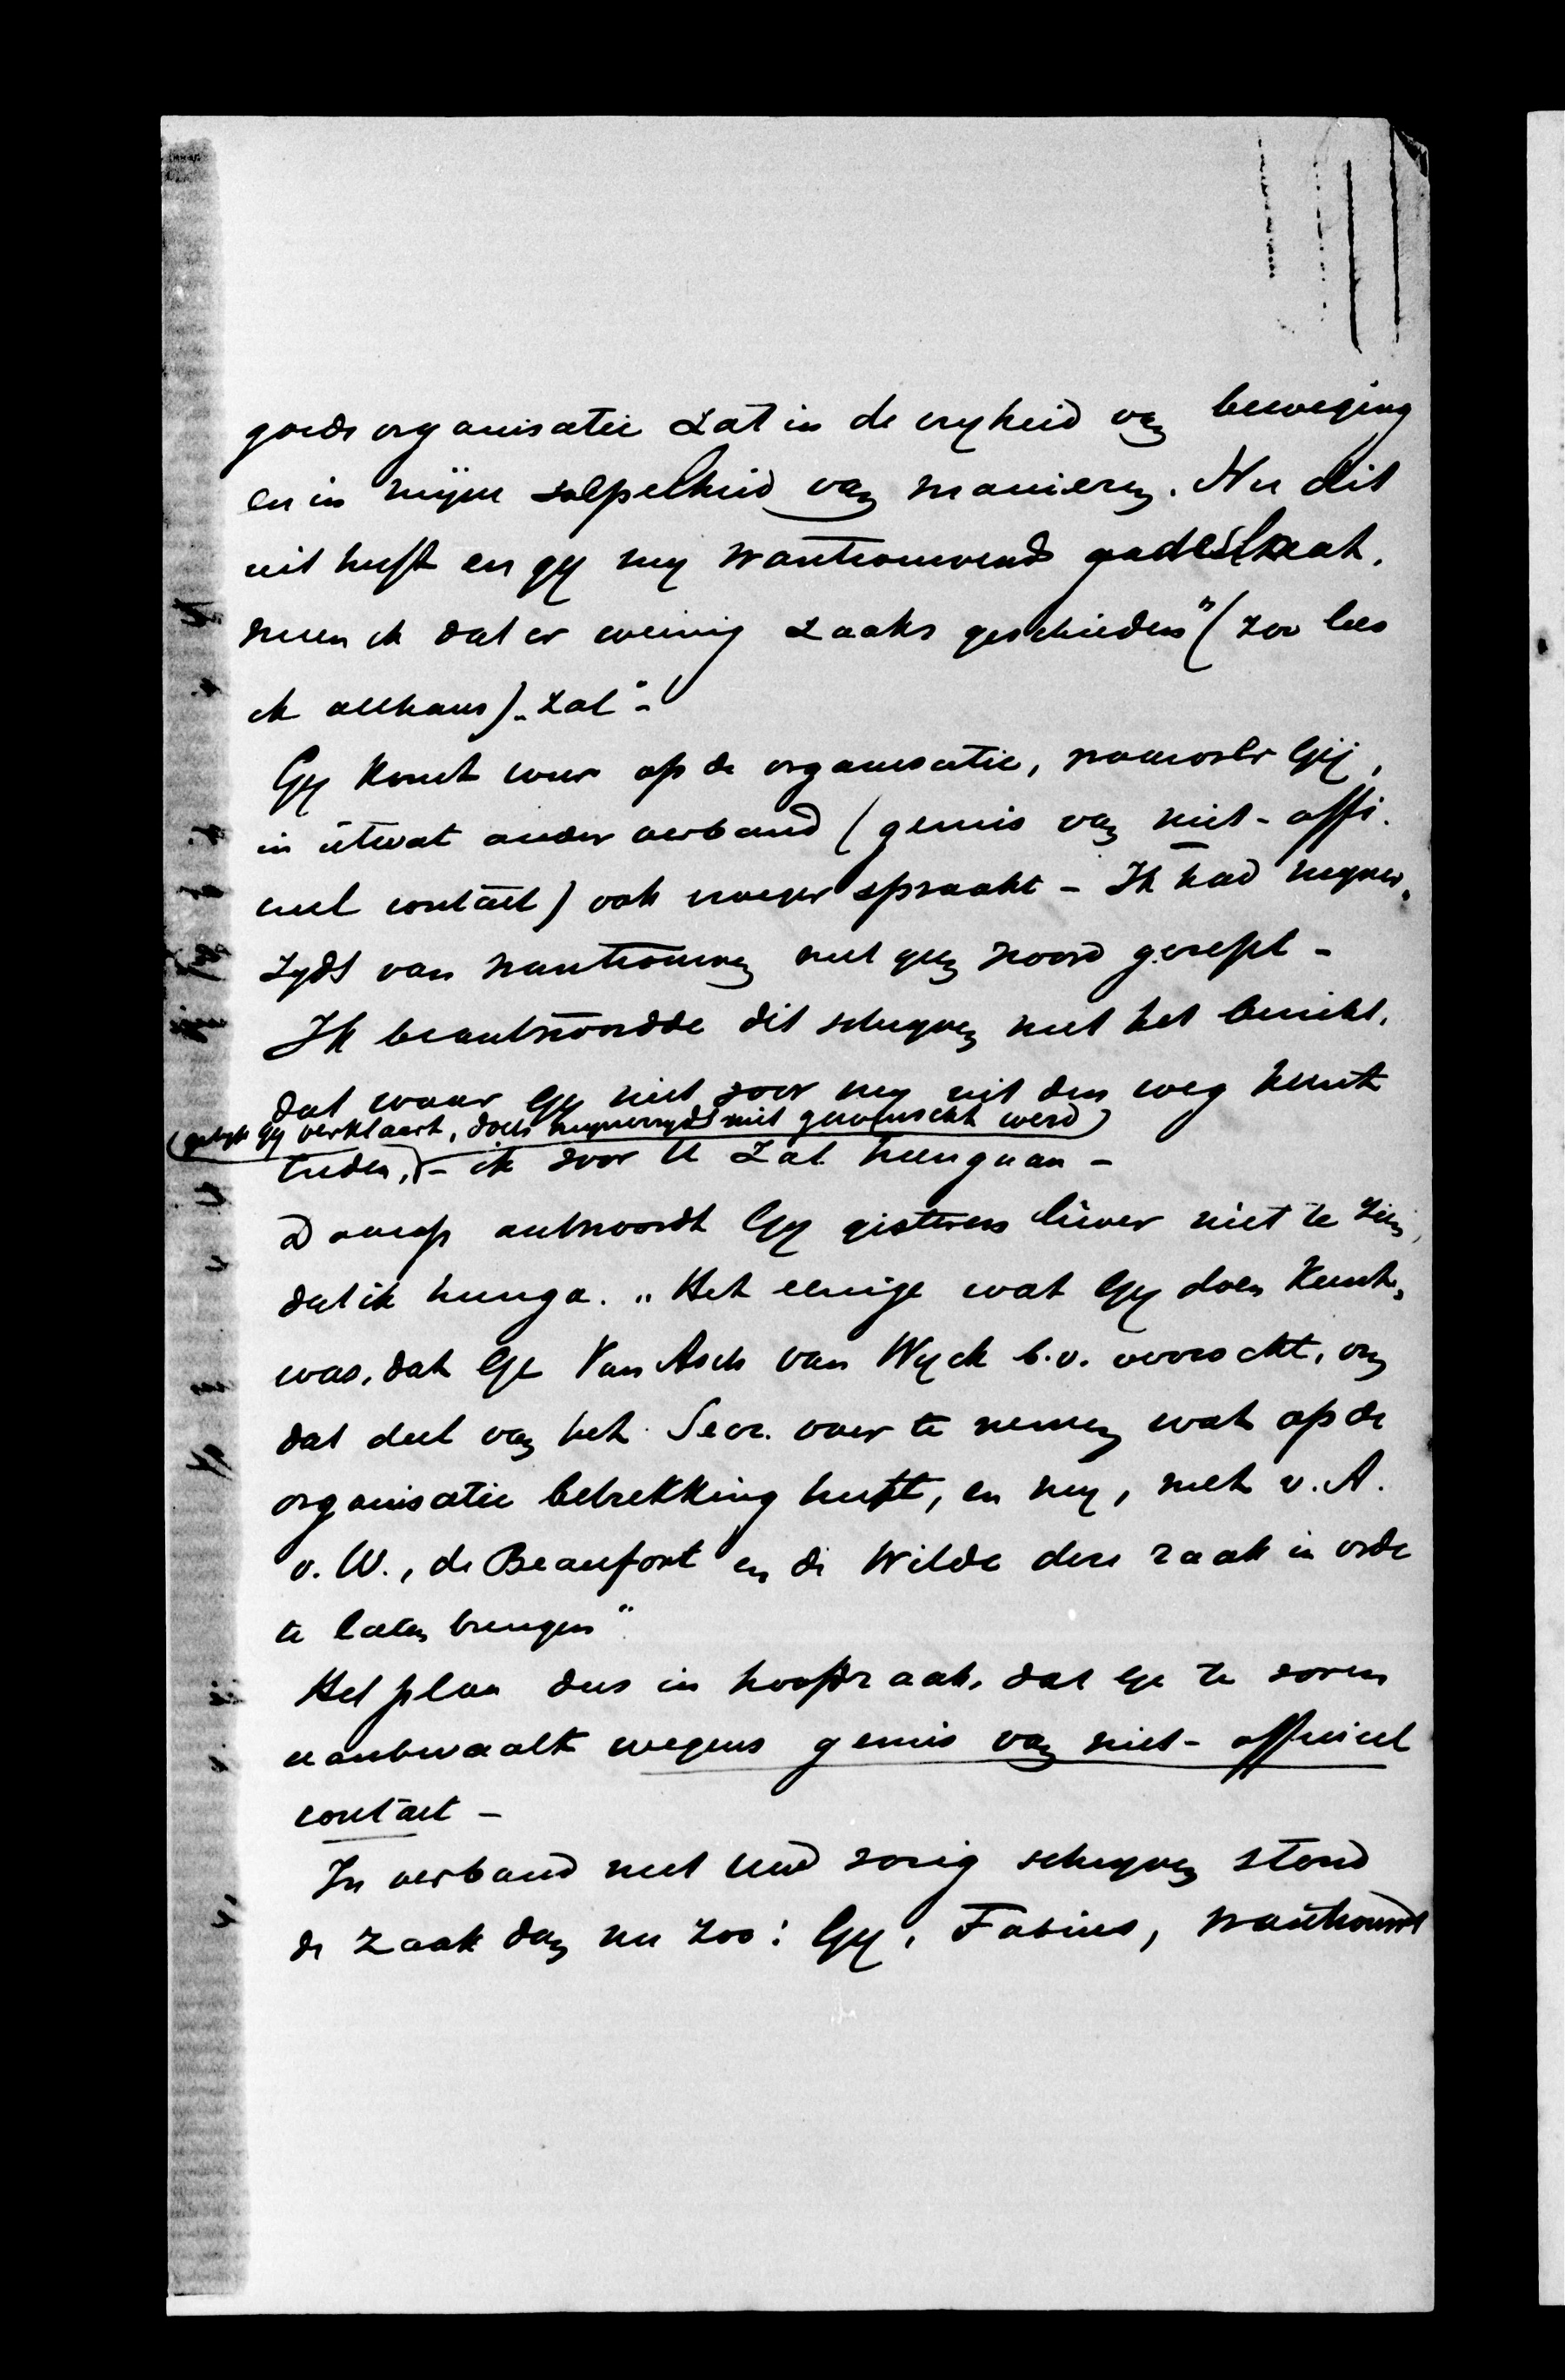 goede organisatie zat in de vryheid van beweging
en in mijne soepelheid van manieren. Nu dit
uit heeft en gy my wantrouwend gadeslaat,
meen ik dat er weinig zaaks geschieden" (zoo lees
ik althans) "zal" -
Gy komt weer op de organisatie, waarover Gij,
in ietwat ander verband (gemis van niet-offi-
cieel contact) ook vroeger spraakt - Ik had myner-
zyds van wantrouwen met geen woord gerept -
Ik beantwoordde dit schryven met het bericht,
dat waar Gy niet voor my uit den weg kunt
(gelyk Gy verklaart, doch mynerzyds niet gewenscht werd)
treden, - ik voor U zal heengaan -
Daarop antwoordt Gy gisteren liever niet te zien,
dat ik heenga. "Het eenige wat Gy doen kunt,
was, dat Ge Van Asch van Wyck b.v. verzocht, om
dat deel van het Secr. over te nemen wat op de
organisatie betrekking heeft, en my, met v. A.
v. W., de Beaufort en de Wilde deze zaak in orde
te laten brengen"
Het plan dus in hoofdzaak, dat Ge te voren
aanbevaalt wegens gemis van niet-officieel
contact -
In verband met Uw vorig schryven stond
de zaak dan nu zoo: Gy, Fabius, wantrouwt